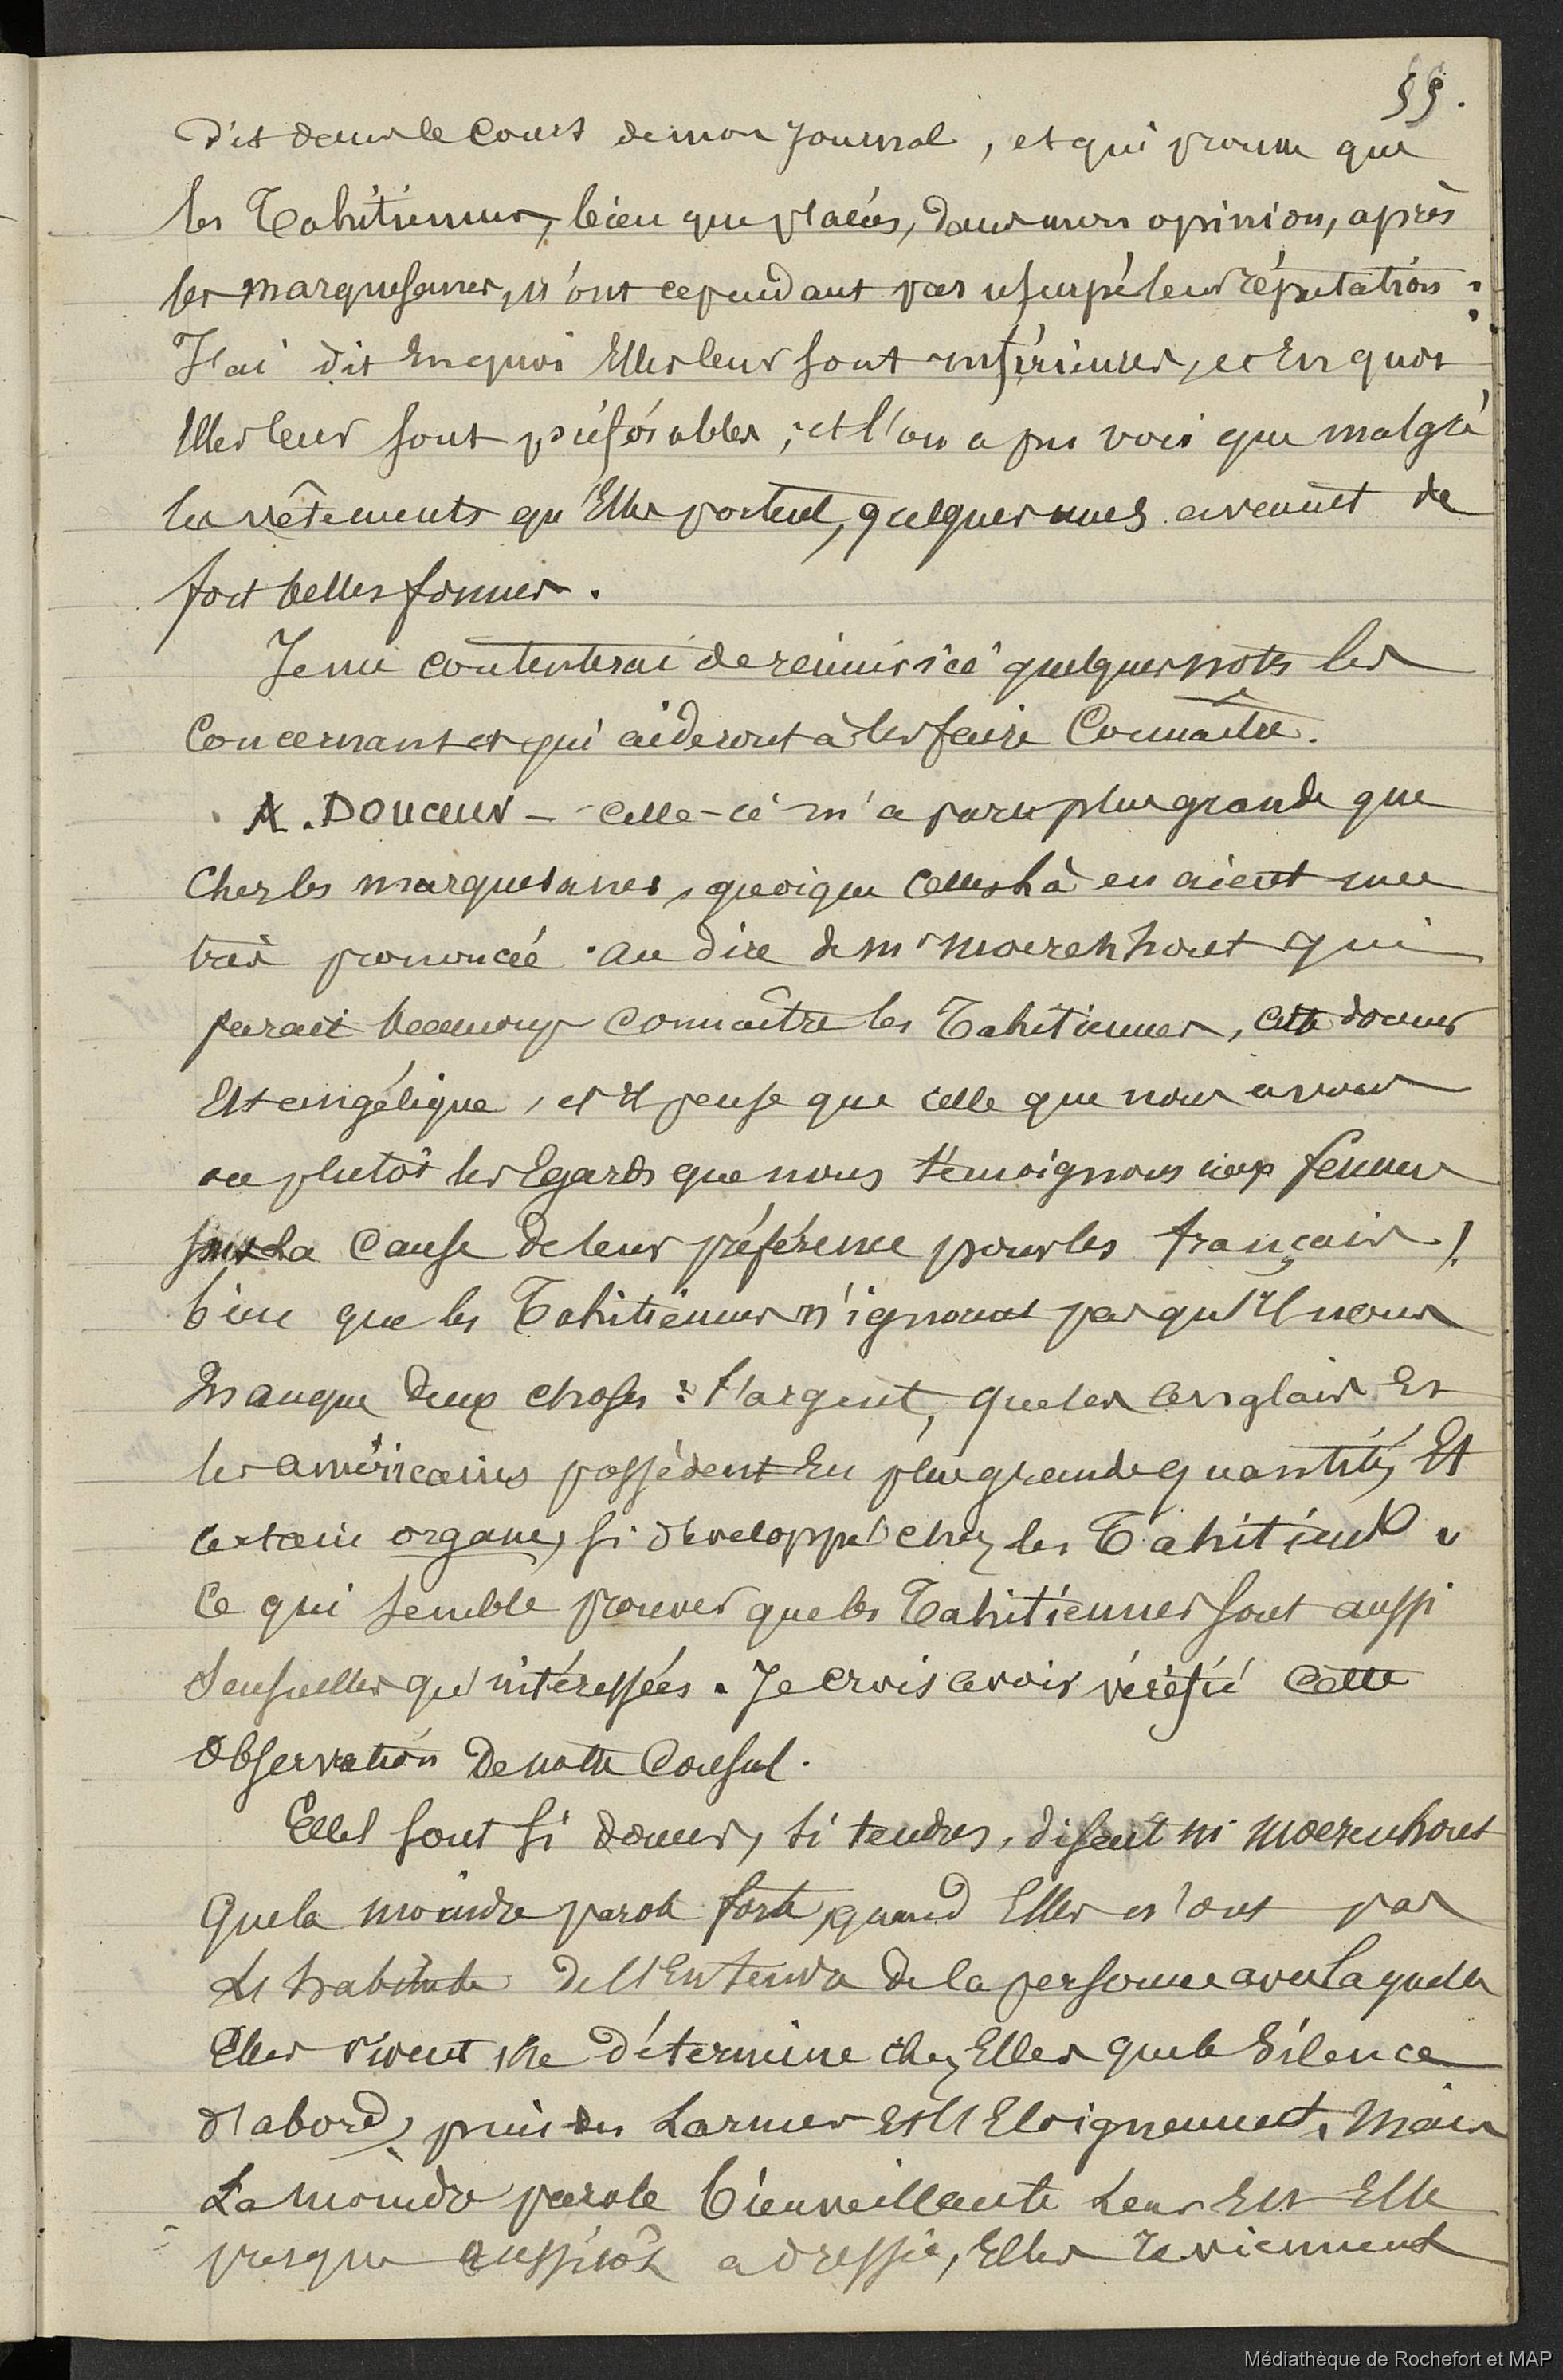 59.
dit dans le cours de mon journal, et qui prouve que
les Tahitiennes, bien que placées, dans mon opinion, après
les marquesanes, n'ont cependant pas usurpé leur réputation :
J'ai dit en quoi Elles leur sont inférieures, et En quoi
Elles leur sont préférables ; et l'on a pu voir que malgré
les vêtements qu'Elles portent, quelques unes avaient de
fort belles formes.
Je me contenterai de réunir ici quelques mots les
Concernant et qui aideront à les faire Connaître.
A. Douceur - Celle-ci m'a paru plus grande que
Chez les marquesanes, quoique celles là en aient une
très prononcée. au dire de Mr Moerenhout qui
parait beaucoup connaître les Tahitiennes, cette douceur
Est angélique, et Il pense que celle que nous avons
ou plutôt les Egards que nous témoignons aux femmes
sont La Cause de leur préférence pour les français,
bien que les Tahitiennes n'ignorent pas qu'Il nous
Manque deux choses : l'argent, que les anglais Et
les américains possèdent En plus grande quantité, Et
certain organe, si développé chez les Tahitiens.
Ce qui semble prouver que les Tahitiennes sont aussi
sensuelles qu'intéressées. Je crois avoir vérifié cette
observation de notre Consul.
Elles sont si douces, si tendres, disait Mr Moerenhout
Que la moindre parole forte, quand Elles n'ont pas
L'habitude de l'Entendre de la personne avec Laquelle
Elles vivent, Ne détermine chez Elles que le Silence
d'abord, puis des Larmes Et l'Eloignement. Mais
La moindre parole bienveillante Leur Est Elle
presque aussitôt adressée, Elles Reviennent
Médiathèque de Rochefort et MAP